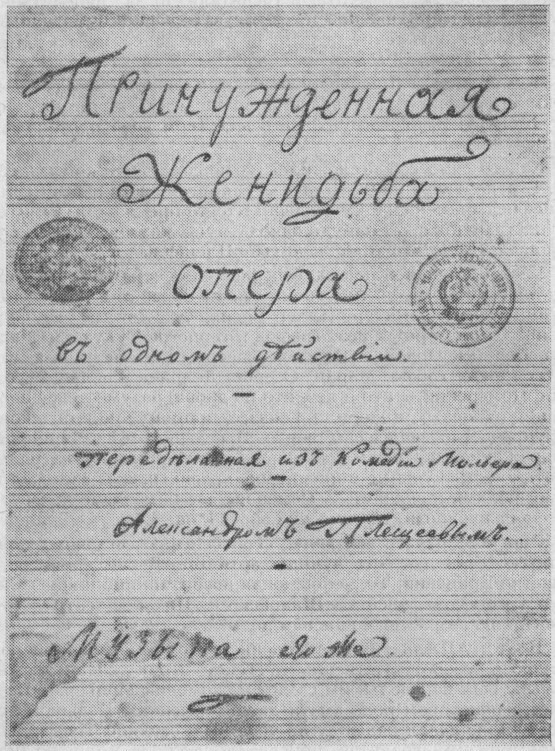 Принужденная
Женидьба
опера
въ одномъ дѣйствіи.
переделанная изъ Комедіи Мольера.
Александромъ Плещеевымъ.
Музыка его же.